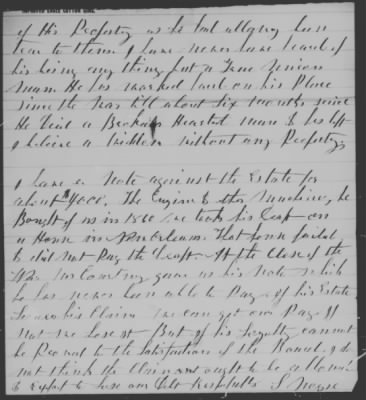 of his Property as he but allong been
true to them. I have never have heard of
his being any thing but a True Union
Man. He has worked hard on his Place
since the War till about six months since
He Died a Broken Hearted Man & has left
I believe a widdow without any Property

I have a Note against the Estate for
about $4000. The Engine & other Machinery he
Bought of us in 1860 we took his Draft on
a House in New Orleans. That house failed
& did not Pay the Draft. After the Close of the
War Mr gave us his Note which
he has never been able to Pay & if his Estate
his Claim we can get our Pay If
not we lose it But if his Loyalty cannot
be Proved to the Satisfaction of the Board I do
not think the Claim ought to be allowed
& expect to lose our Debt Respectfully